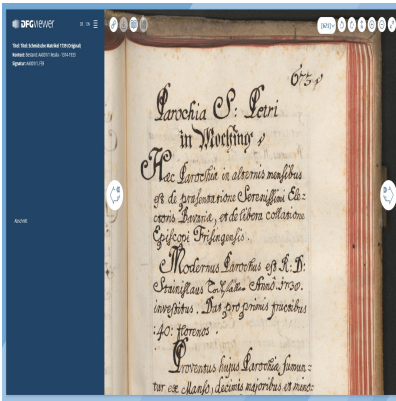 DFG viewer
Titel: Schmidtsche Matrikel 1739 (Original)
673
Parochia S: Petri
in Moching
Hæc Parochia in alternis mensibus
est de præsentatione Serenissimi Ele=
ctoris Bavariæ, et de libera collatione
Episcopi Frisingensis.
Modernus Parochus est R: D:
Stanislaus Anno 1730.
investitus. Dat pro primis fructibus
:40: florenos.
Proventus hujus Parochiæ sumun=
tur ex Manso, decimis majoribus et mino=